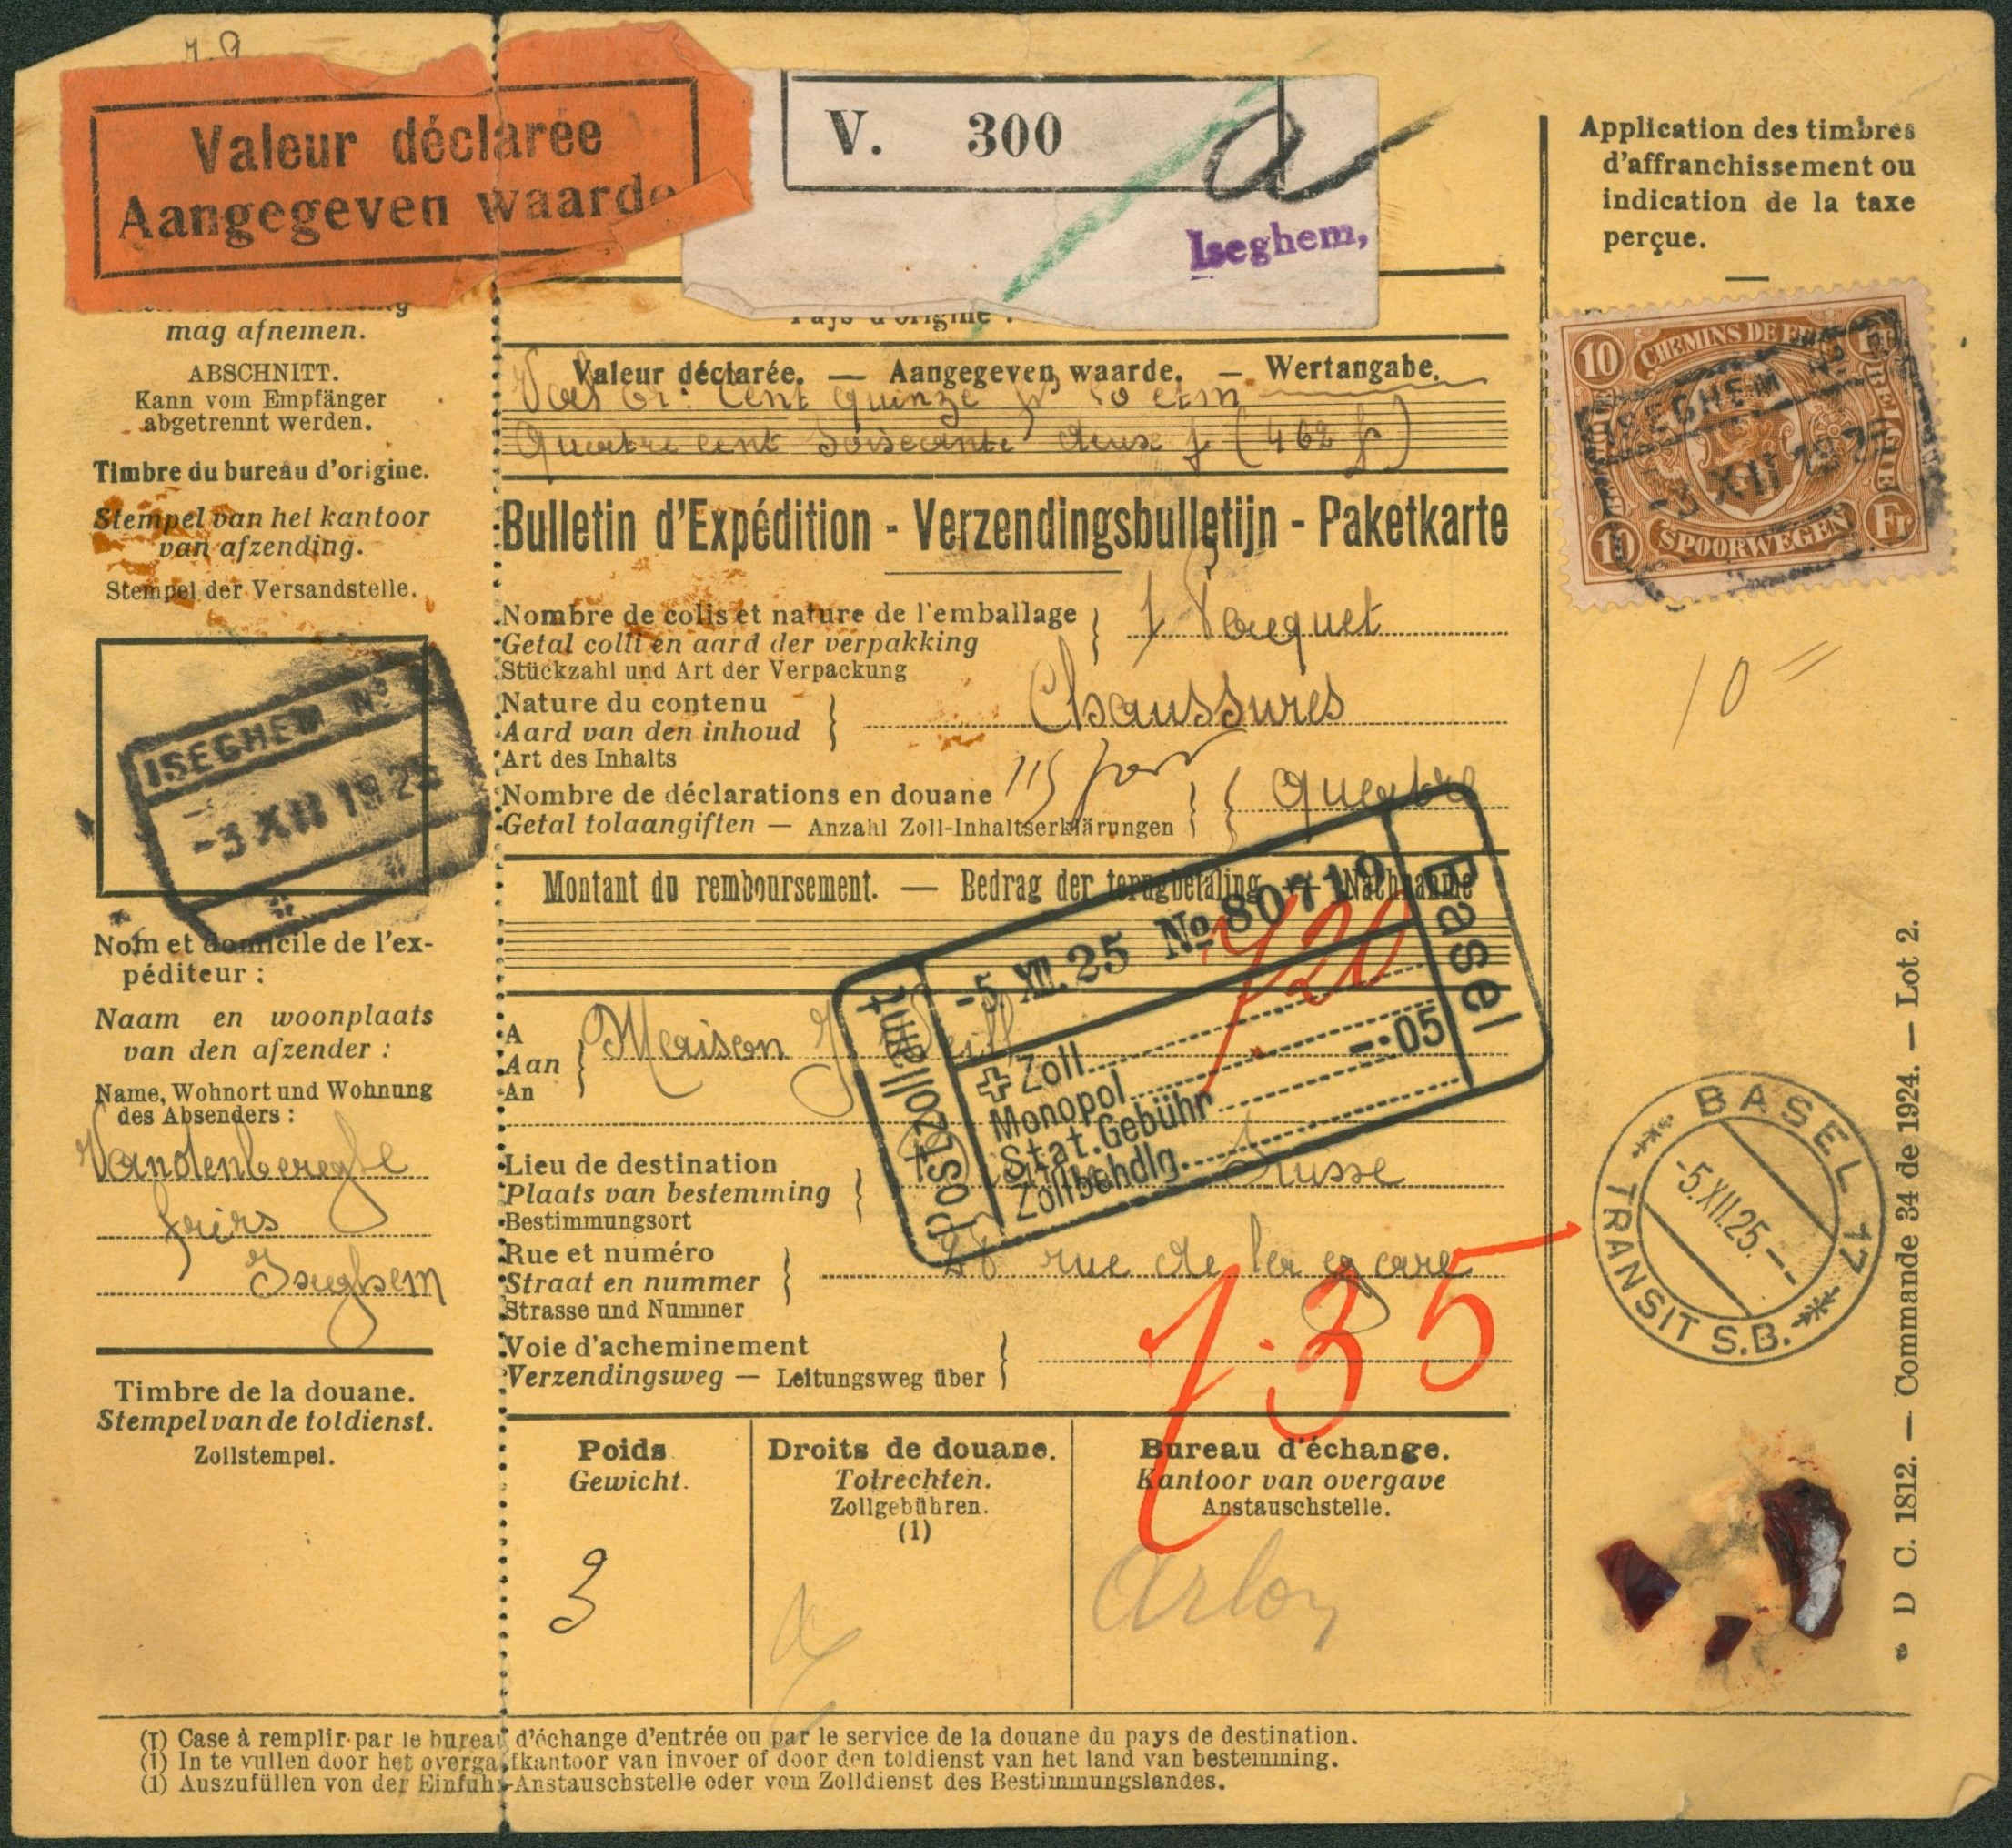 Valeur déclarée
Aangegeven waarde
V. 300
a
Iseghem,
mag afnemen.
ABSCHNITT.
Kann vom Empfänger
abgetrennt werden.
Timbre du bureau d'origine.
Stempel van het kantoor
van afzending.
Stempel der Versandstelle.
ISEGHEM No
-3 XII 1925
Nom et domicile de l'ex-
péditeur :
Naam en woonplaats
van den afzender :
Name, Wohnort und Wohnung
des Absenders :
Vandenberghe
frèrs
Iseghem
Timbre de la douane.
Stempel van de toldienst.
Zollstempel.
Pays d'origine :
Valeur déclarée. — Aangegeven waarde. — Wertangabe.
Val or: Cent quinze fr 50 ctm
Quatre cent soisecante deux f (462 fr)
Bulletin d'Expédition - Verzendingsbulletijn - Paketkarte
Nombre de colis et nature de l'emballage
Getal colli en aard der verpakking
Stückzahl und Art der Verpackung
1 Paquet
Nature du contenu
Aard van den inhoud
Art des Inhalts
Chaussures
Nombre de déclarations en douane
Getal tolaangiften — Anzahl Zoll-Inhaltserklärungen
quatre
Montant du remboursement. — Bedrag der terugbetaling — Nachnahme
7.20
Postzollamt Basel
-5 XII. 25 No 80719
Zoll
Monopol
Stat. Gebühr —.05
Zollbehdlg.
A
Aan
An
Maison J
Lieu de destination
Plaats van bestemming
Bestimmungsort
Suisse
Rue et numéro
Straat en nummer
Strasse und Nummer
rue de la gare
Voie d'acheminement
Verzendingsweg — Leitungsweg über
7.35
Poids
Gewicht.
3
Droits de douane.
Tolrechten.
Zollgebühren.
(1)
Bureau d'échange.
Kantoor van overgave
Anstauschstelle.
Arlon
(1) Case à remplir par le bureau d'échange d'entrée ou par le service de la douane du pays de destination.
(1) In te vullen door het overgaafkantoor van invoer of door den toldienst van het land van bestemming.
(1) Auszufüllen von der Einfuhr-Anstauschstelle oder vom Zolldienst des Bestimmungslandes.
Application des timbres
d'affranchissement ou
indication de la taxe
perçue.
10 CHEMINS DE FER Fr
BELGIQUE BELGIE
10 SPOORWEGEN Fr
ISEGHEM
-3 XII 192
10 =
BASEL 17
-5.XII.25.—
TRANSIT S.B.
D C. 1812. — Commande 34 de 1924. — Lot 2.